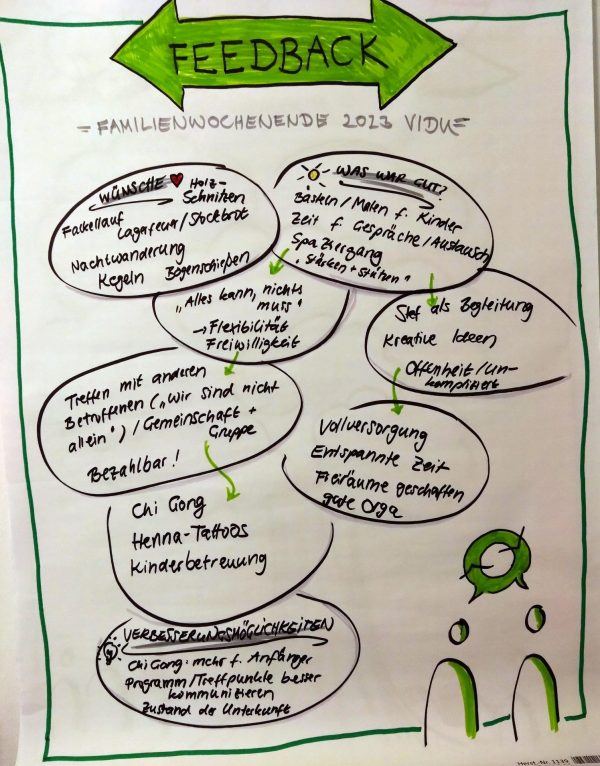 FEEDBACK
= FAMILIENWOCHENENDE 2023 VIDU =
WÜNSCHE Holz-
Schnitzen
Fackellauf
Lagerfeuer/Stockbrot
Nachtwanderung
Kegeln Bogenschießen
WAS WAR GUT?
Basteln/Malen f. Kinder
Zeit f. Gespräche/Austausch
Spaziergang
"Stärken + Stützen"
„Alles kann, nichts
muss"
→ Flexibilität
Freiwilligkeit
Stef als Begleitung
Kreative Ideen
Offenheit/Un-
kompliziert
Treffen mit anderen
Betroffenen („Wir sind nicht
allein") / Gemeinschaft +
Gruppe
Bezahlbar!
Vollversorgung
Entspannte Zeit
Freiräume geschaffen
gute Orga
Chi Gong
Henna-Tattoos
Kinderbetreuung
VERBESSERUNGSMÖGLICHKEITEN
Chi Gong: mehr f. Anfänger
Programm/Treffpunkte besser
kommunizieren
Zustand der Unterkunft